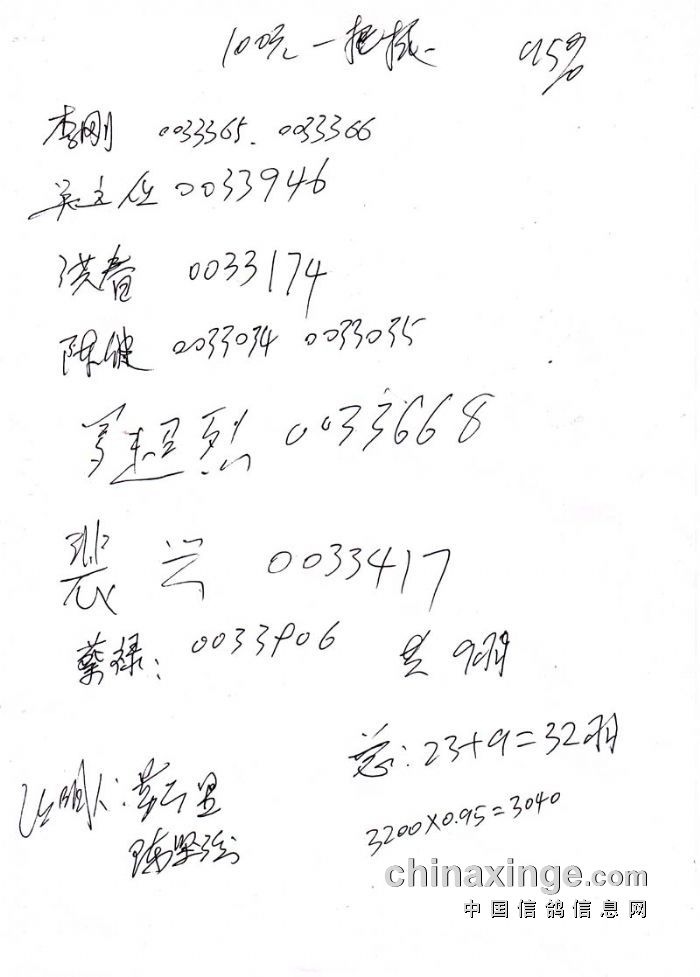 100元一把抓 95%
李刚 0033365. 0033366
吴立 0033946
洪春 0033174
陈健 0033034 0033035
罗超烈 0033668
裴兴 0033417
叶禄: 0033906 共9羽
总:23+9=32羽
证明人:
3200×0.95=3040
陈坚强
chinaxinge.com
中国信鸽信息网